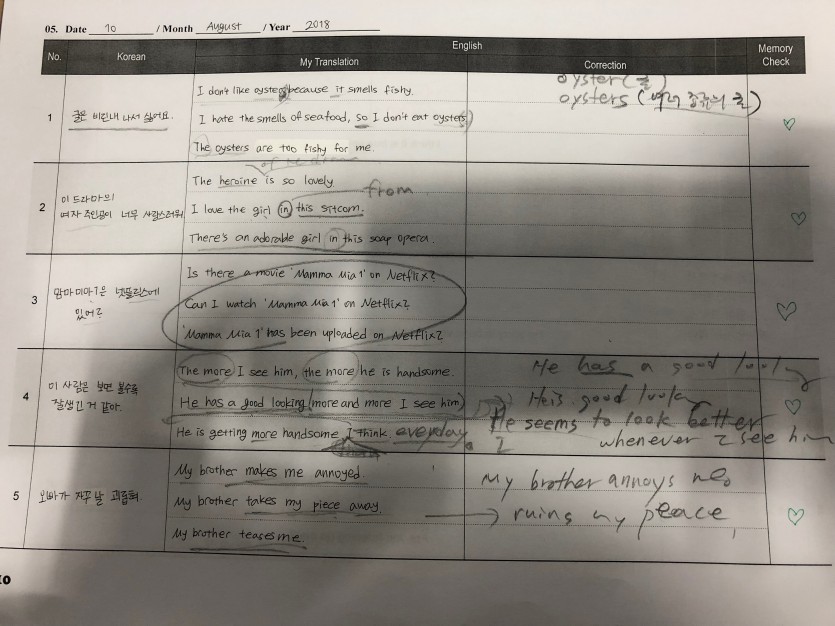 05. Date 10 / Month August / Year 2018
No. Korean English Memory Check
My Translation Correction
1 굴은 비린내 나서 싫어요.
I don't like oyster because it smells fishy.
I hate the smells of seafood, so I don't eat oysters)
The oysters are too fishy for me.
oyster (굴)
oysters (여러 종류의 굴)
2 이 드라마의
여자 주인공이 너무 사랑스러워
The heroine is so lovely
I love the girl in this sitcom.
There's an adorable girl in this soap opera.
from
3 맘마미아1은 넷플릭스에
있어?
Is there a movie 'Mamma Mia 1' on Netflix?
Can I watch 'Mamma Mia 1' on Netflix?
'Mamma Mia 1' has been uploaded on Netflix?
4 이 사람은 보면 볼수록
잘생긴 거 같아.
The more I see him, the more he is handsome.
He has a good looking (more and more I see him)
He is getting more handsome I think. everyday.
He has a good look
He is good look
He seems to look better
whenever I see him
5 오빠가 자꾸 날 괴롭혀.
My brother makes me annoyed.
My brother takes my piece away.
My brother teases me.
My brother annoys me.
→ ruins my peace
10